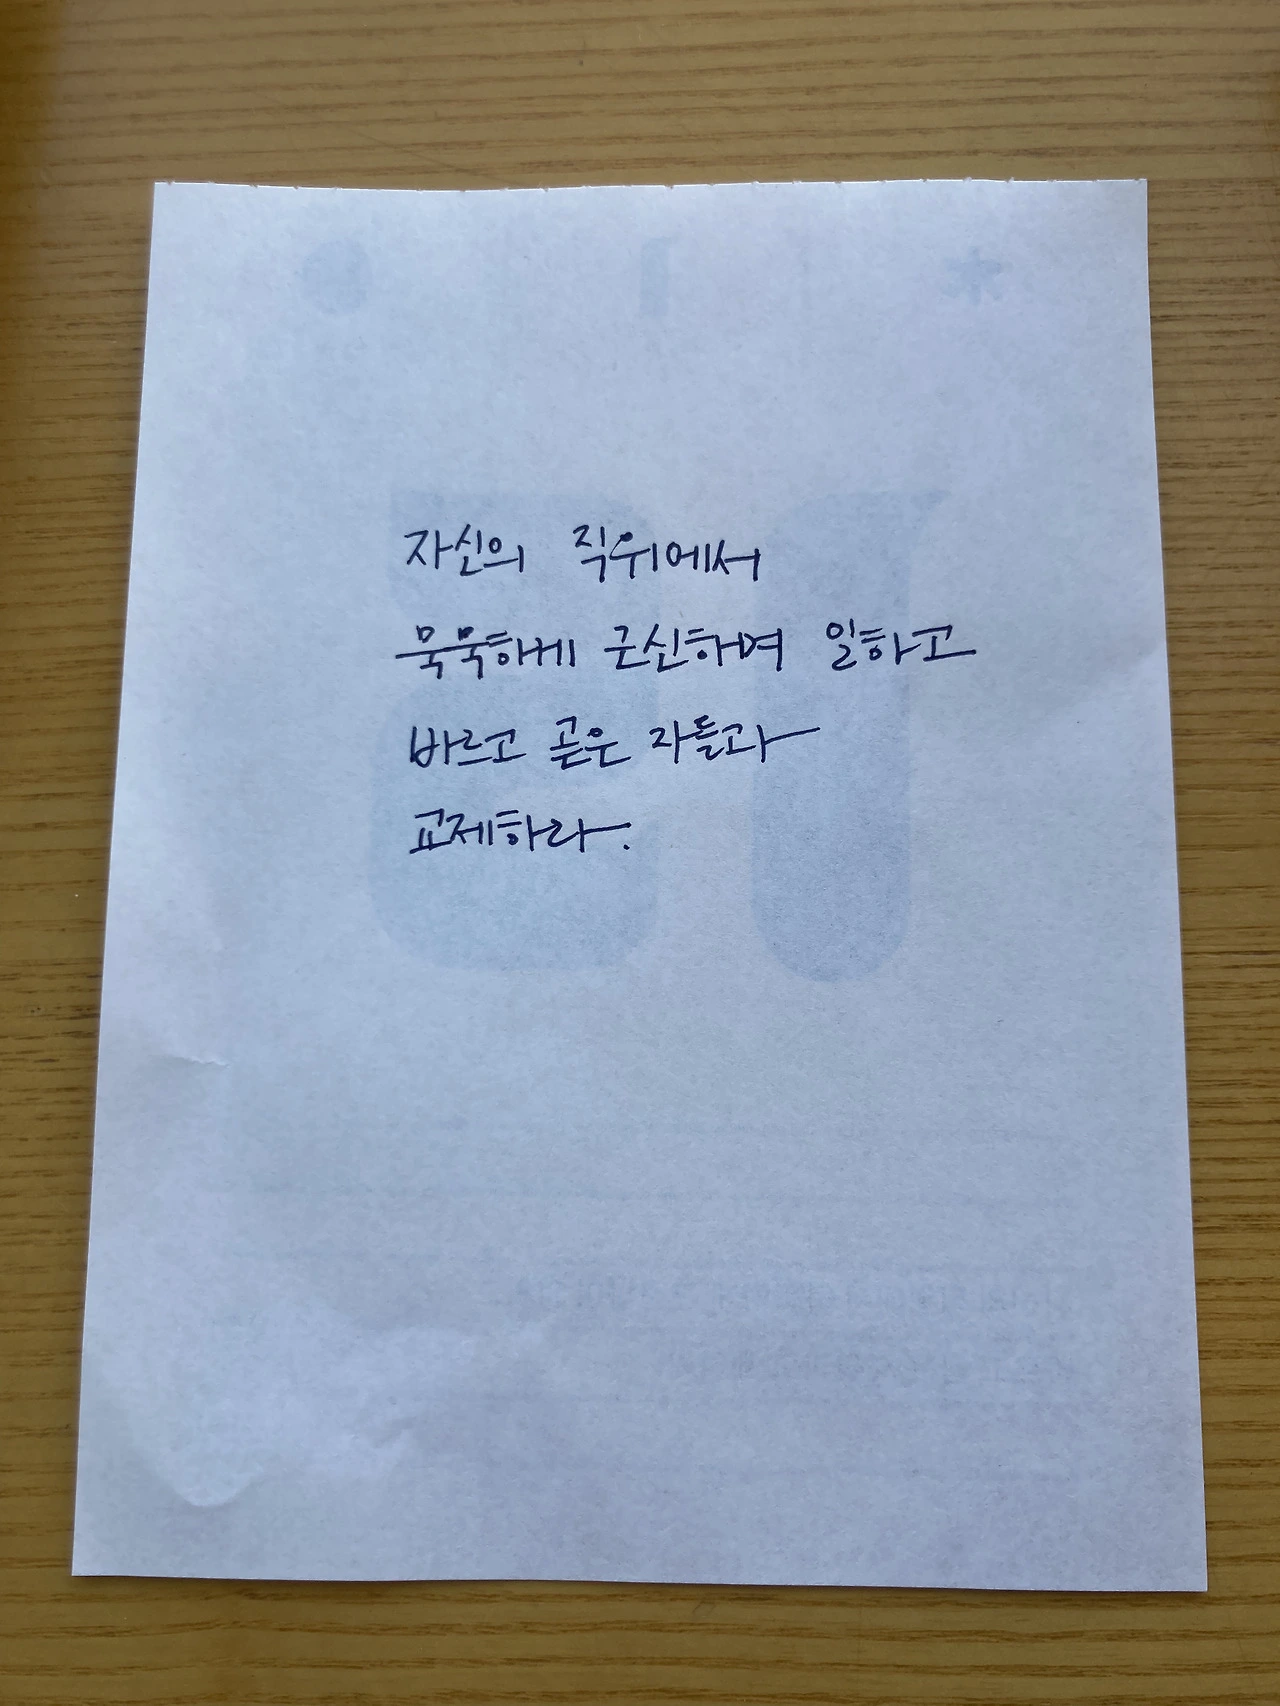 자신의 직위에서
묵묵하게 근신하며 일하고
바르고 곧은 자들과
교제하라.